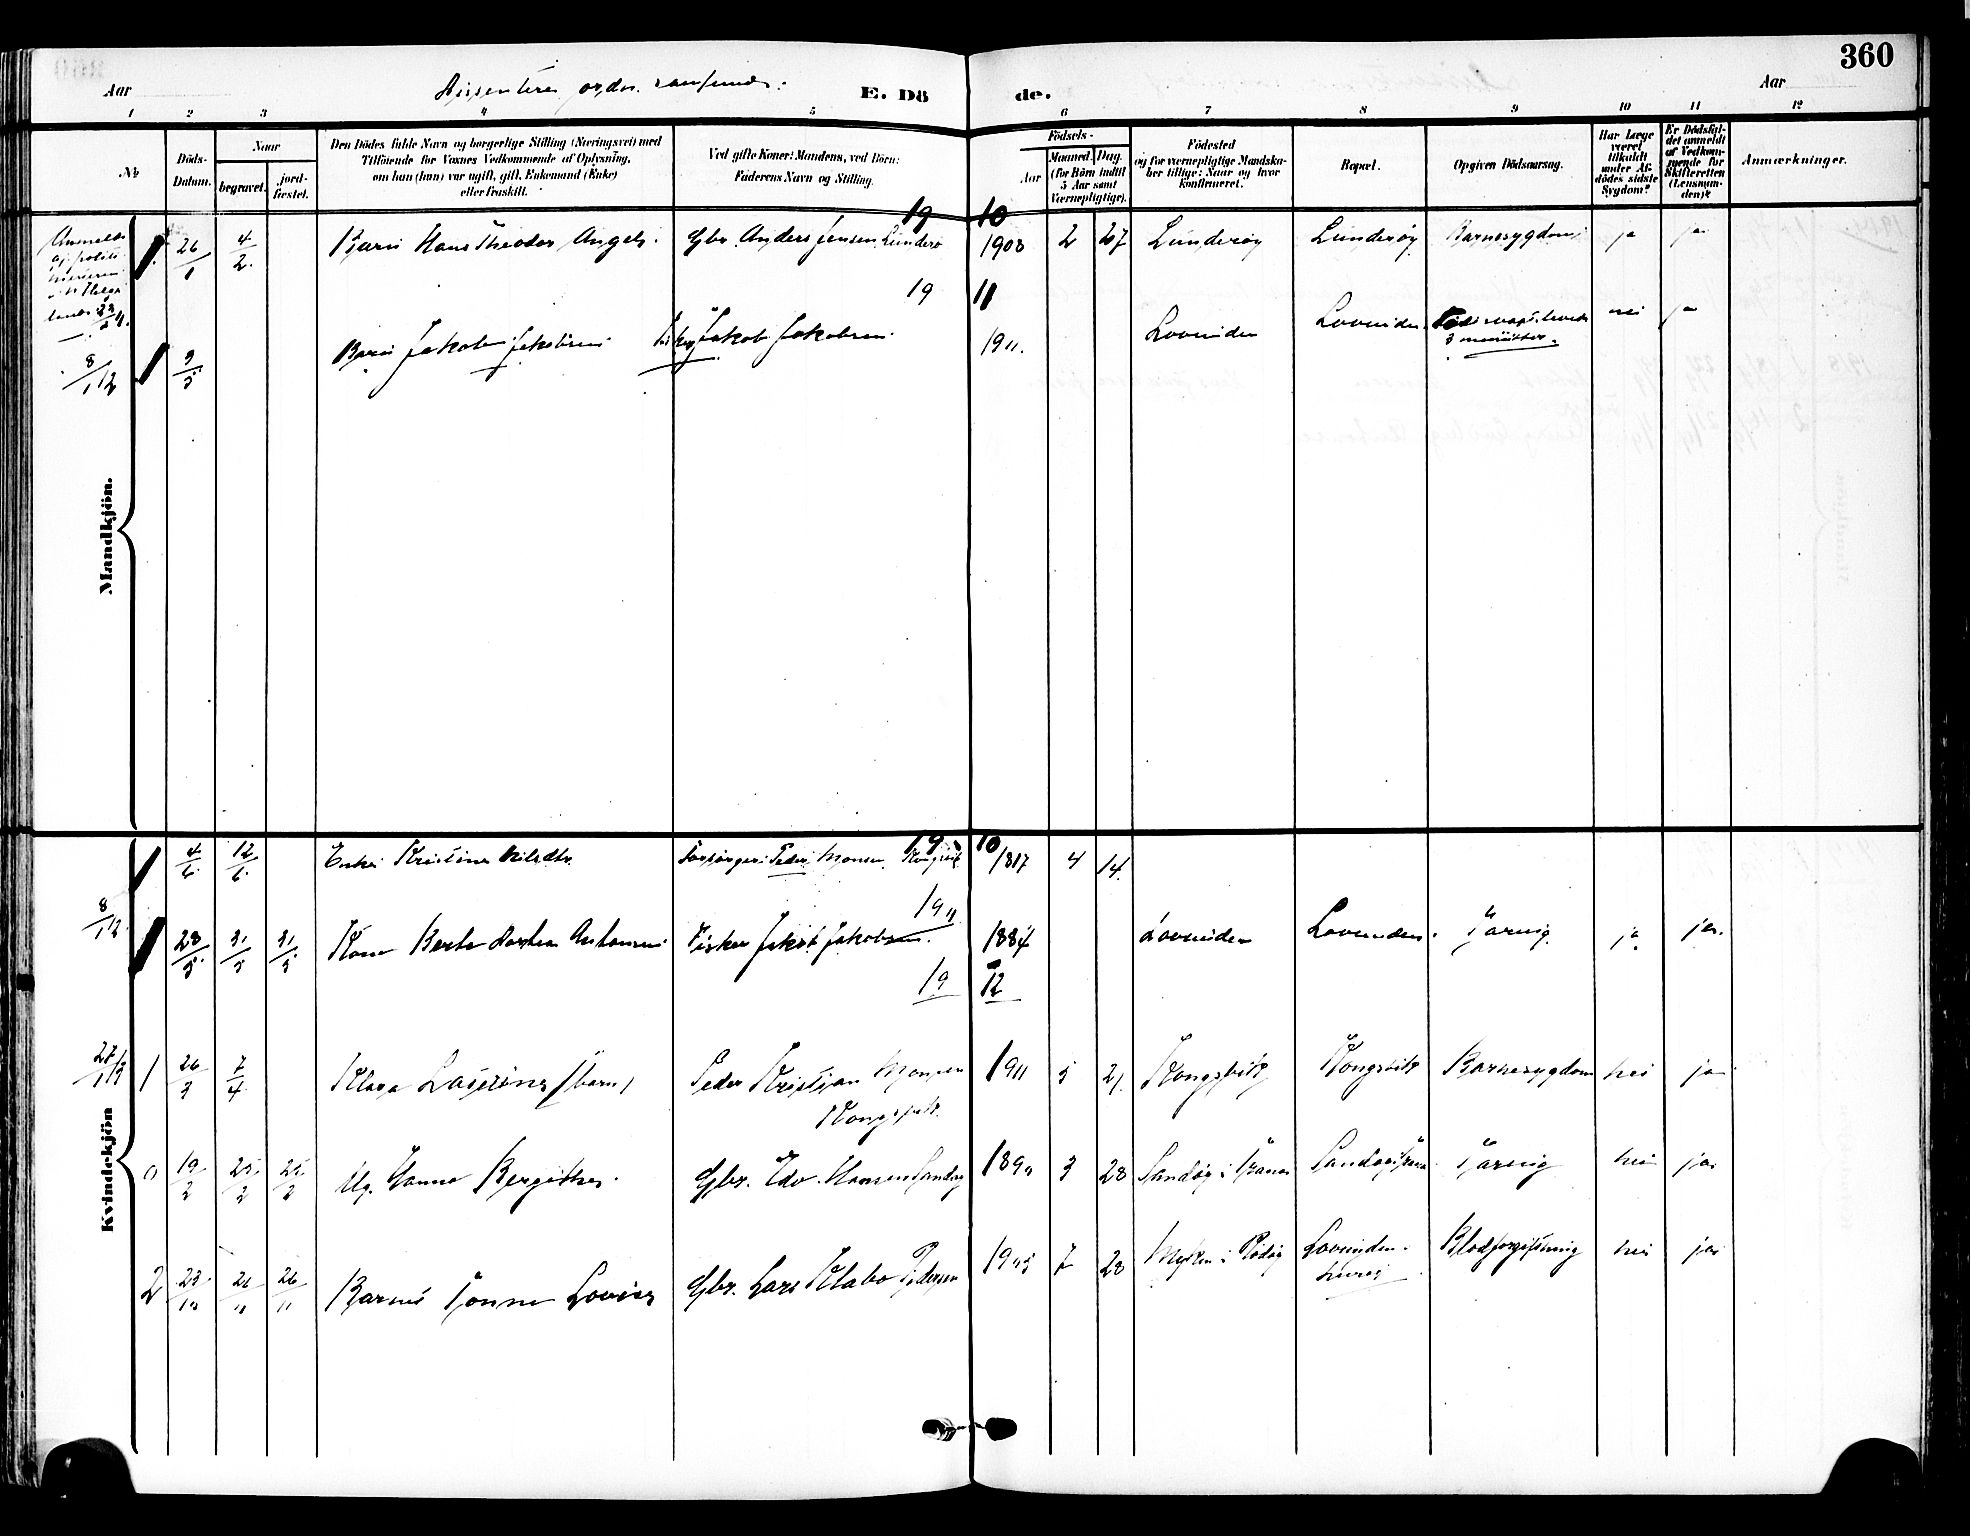 360
Aar
Dissentere ordn. samfund:
E. Dö
de.
Aar
1 2 3 4 5 6 7 8 9 10 11 12
№
Döds-
Datum.
Naar
begravet.
jord-
fæstet.
Den Dödes fulde Navn og borgerlige Stilling (Næringsvei) med
Tilföiende for Voxnes Vedkommende af Oplysning,
om han (hun) var ugift, gift, Enkemand (Enke)
eller fraskilt.
Ved gifte Koner: Mandens, ved Börn:
Faderens Navn og Stilling.
Födsels-
Aar
Maaned. Dag.
(for Börn indtil
5 Aar samt
Værnepligtige).
Födested
og for værnepligtige Mandska-
ber tillige: Naar og hvor
konfirmeret.
Bopæl.
Opgiven Dödsaarsag.
Har Læge
været
tilkaldt
under Af-
dödes sidste
Sygdom?
Er Dödsfal-
det anmeldt
af Vedkom-
mende for
Skifteretten
(Lensman-
den)?
Anmærkninger.
Mandkjön.
19 10
1. 26/1 4/2 Barn Hans Theodor Angels. Gbr. Anders Jensen Lunderö 1908 2 27 Lunderöy Lunderöy Barnesygdom ja ja
19 11
8/1 12 1 9/5 Barn Jakob Jakobsen Fisker Jakob Jakobsen 1911. Lovunden Lovunden 3 minutter nei ja
Kvindekjön
19 10
1 4/6 12/6 Enke Kristine Nilsdtr. Forsörger: Peder Monsen Kongsvik 1817 4 14.
19 11
8/1 12 1 28/5 31/5 31/5 Kone Berta Antonsen Fisker Jakob Jakobsen. 1884 Lovunden Lovunden. Tæring. ja ja.
19 12
1 26/3 7/4 Klara (barn) Peder Kristian Monsen
Kongsvik. 1911 5 21. Kongsvik Kongsvik Barnesygdom nei ja
19/2 25/2 25/2 Ug. Hanna Bergithe. Gbr. Edv. Hansen Sandöy 3 28 Sandöy i Træna Tæring nei ja
2 23/10 26/11 26/11 Barnet Jonna Lovise Gbr. Lars Klabo Pedersen 7 28 Myken i Rödöy Lovunden. Blodforgiftning nei ja